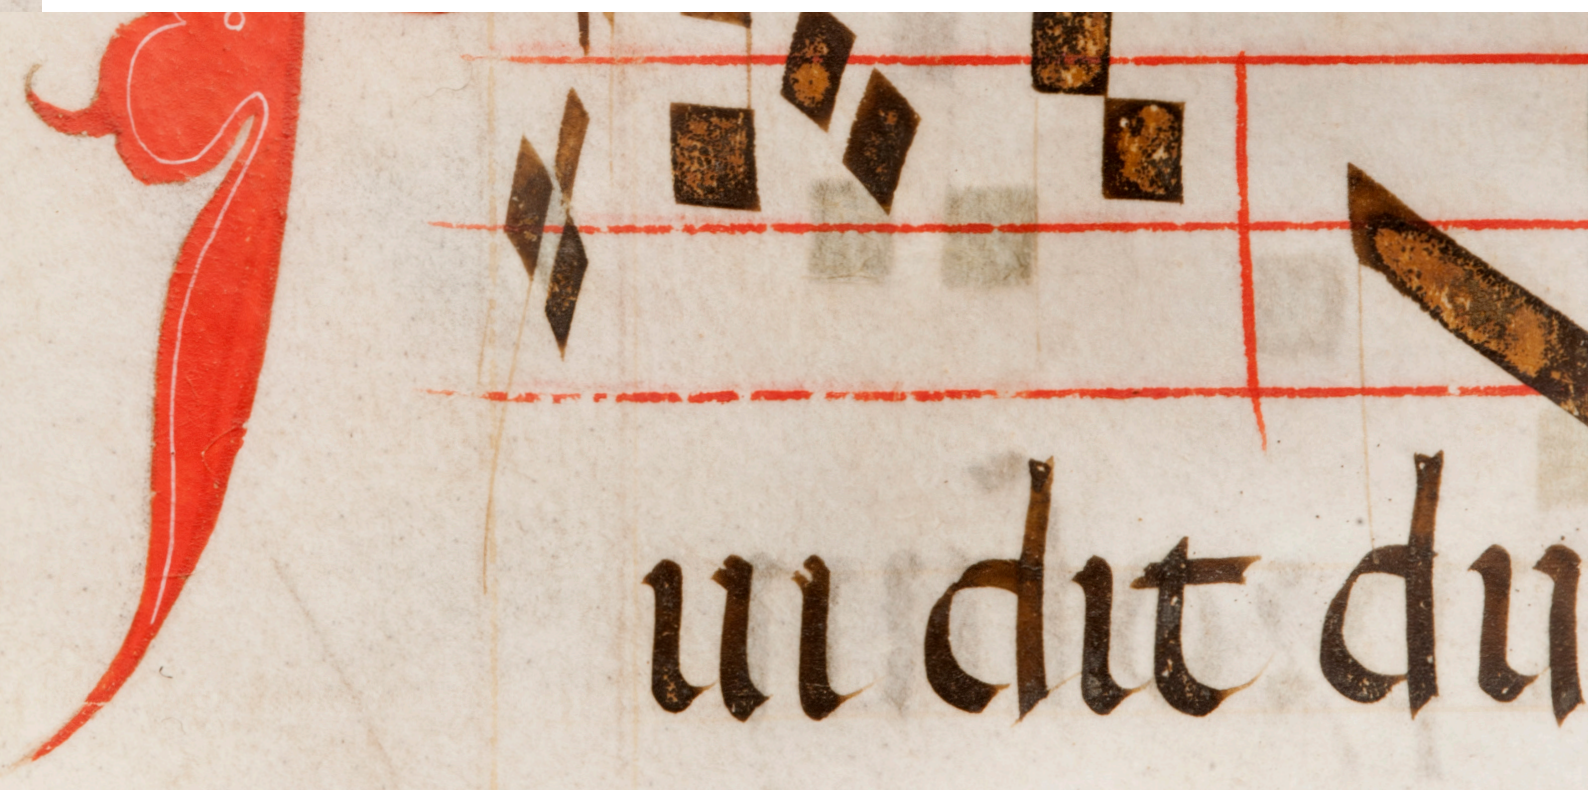 ui dit du